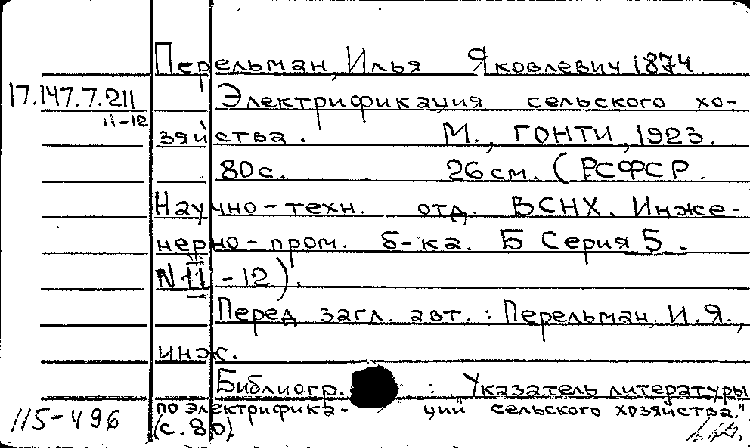 Перельман, Илья Яковлевич 1874
17.147.7.211 Электрификация сельского хо-
11-12
зяйства. М., ГОНТИ, 1923.
80 с. 26 см. (РСФСР.
Научно-техн. отд. ВСНХ. Инже-
нерно-пром. б-ка. Б Серия 5.
N 11-12).
Перед загл. авт.: Перельман, И.Я.,
инж.
Библиогр. : "Указатель литературы
по электрифика- ции сельского хозяйства."
115-496 (с. 80)